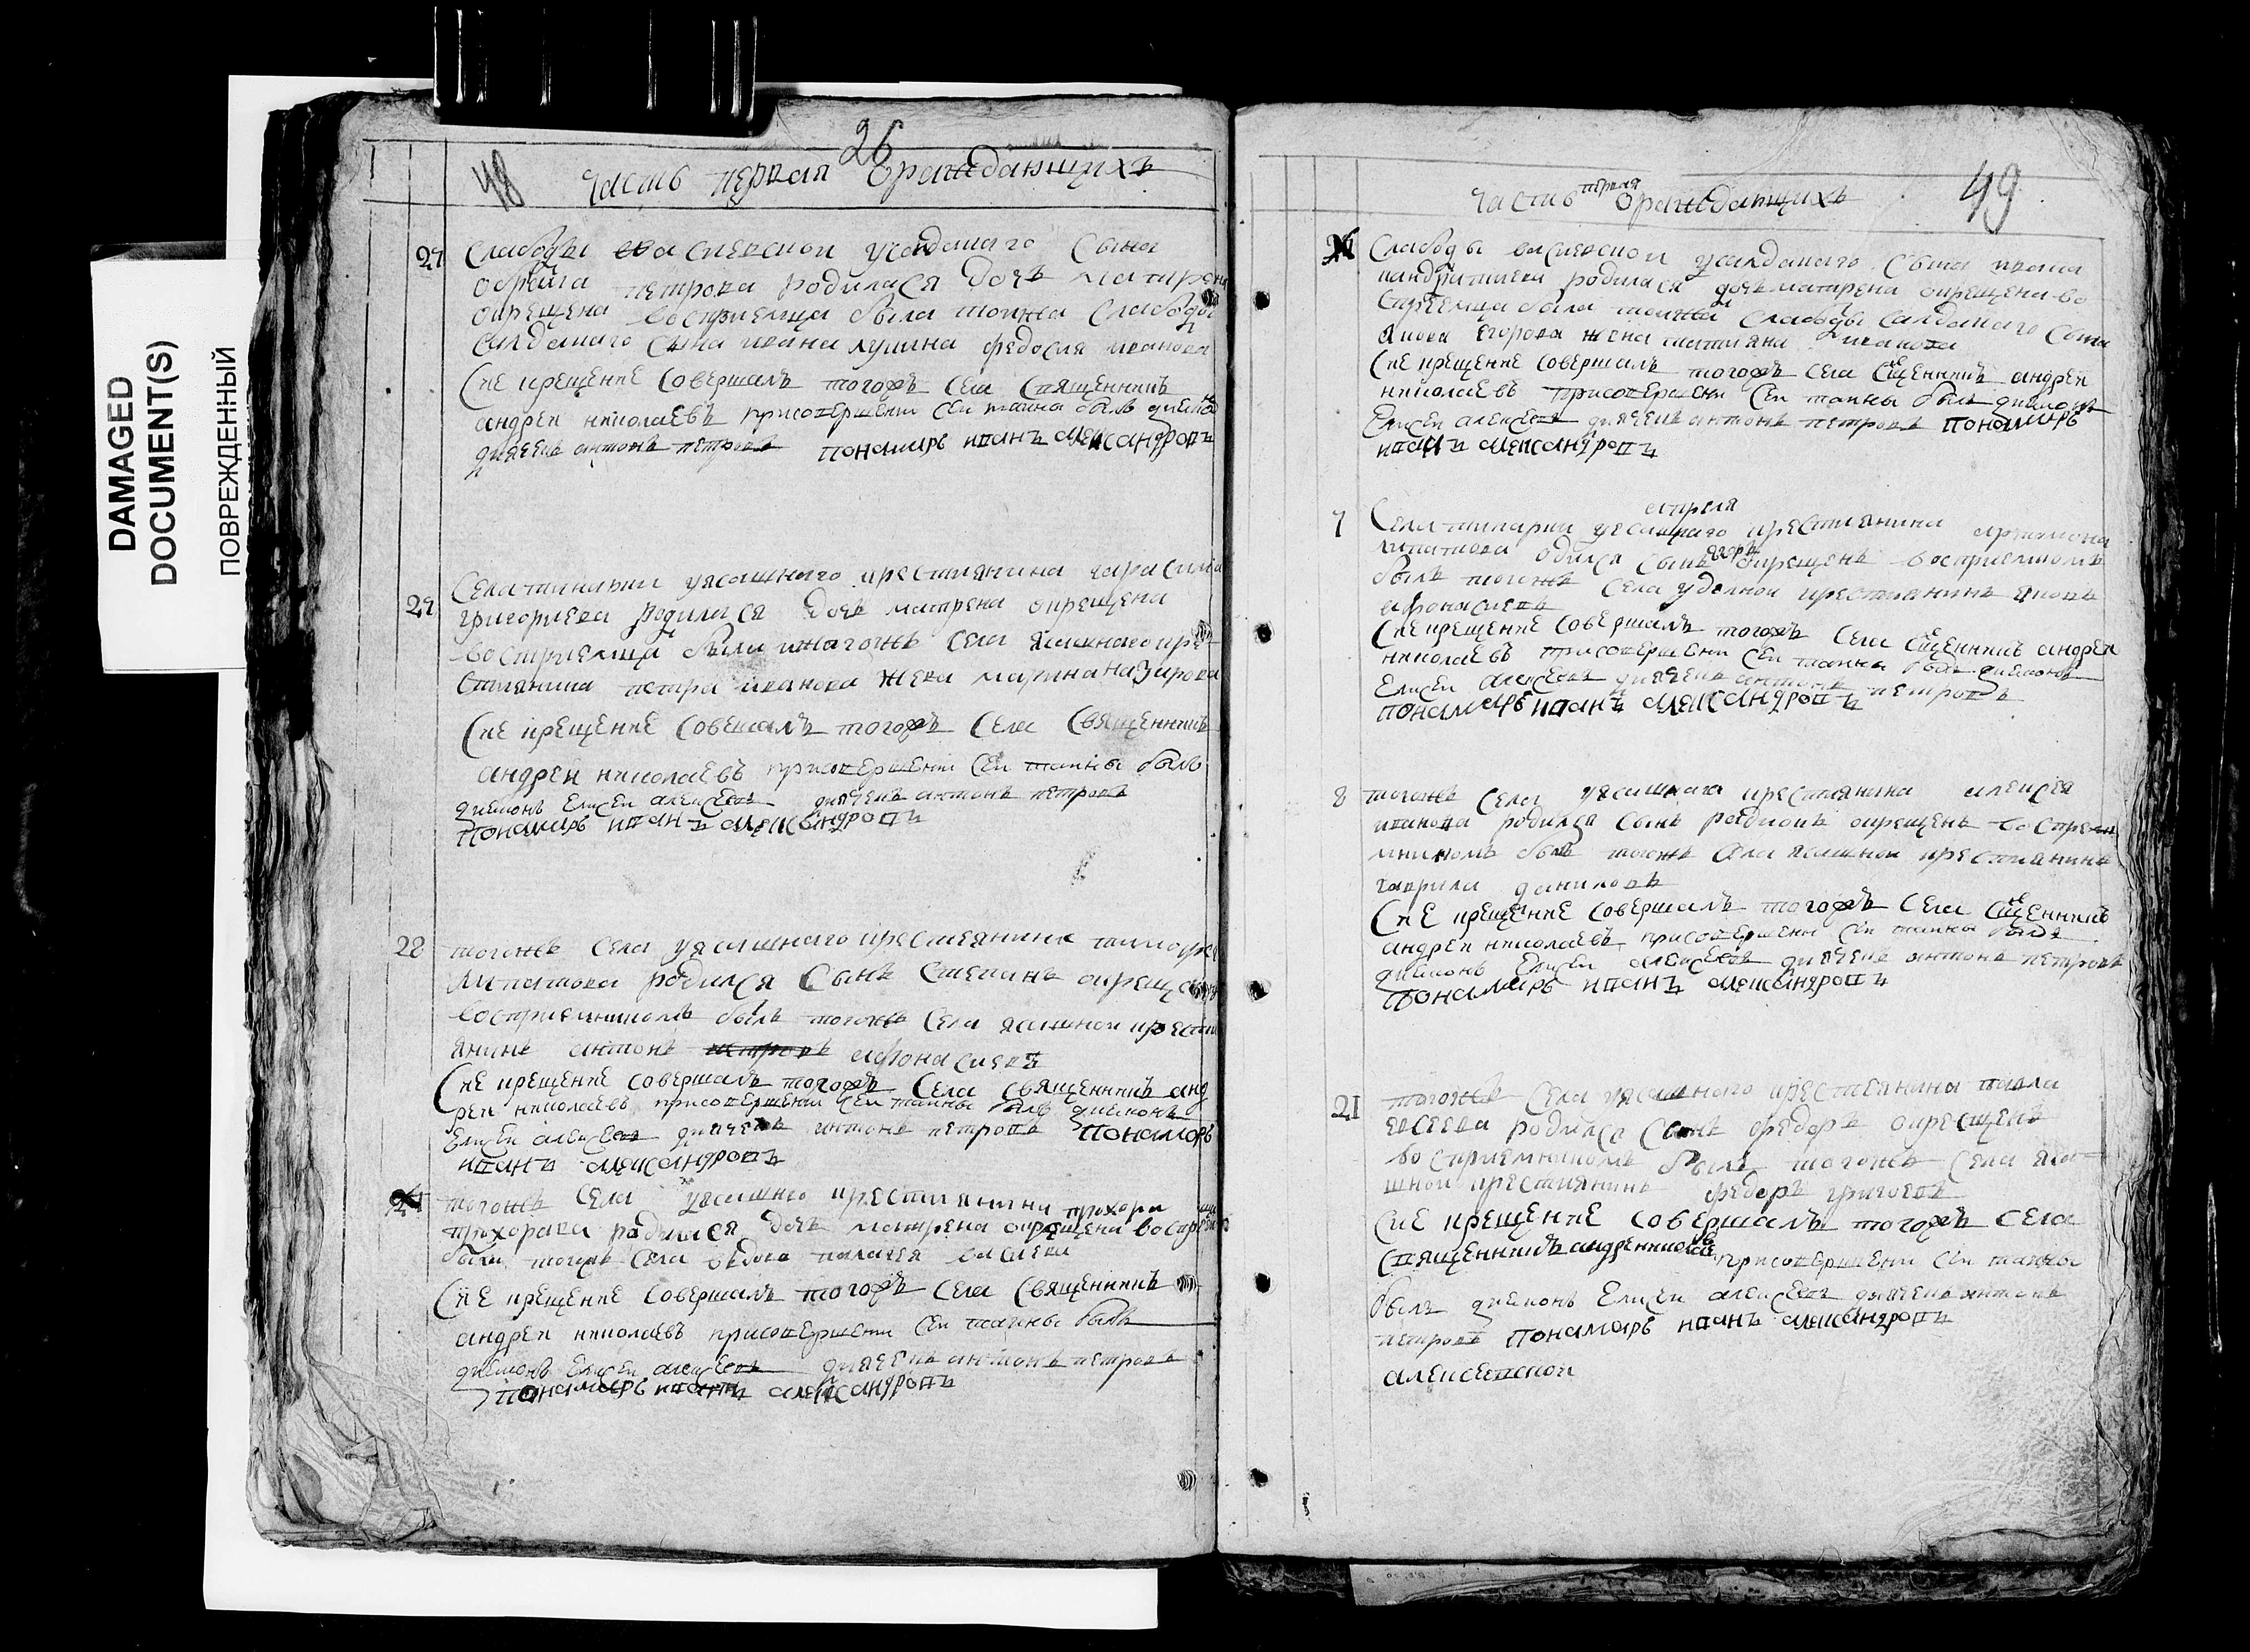 DAMAGED
DOCUMENT(S)
ПОВРЕЖДЕННЫЙ
26
48 часть первая ораждающихъ
27 Слабоды васиевской у салдацкаго сына
петрова родилася дочь матрена
окрещена восприемница была тоижа слабоды
салдацкаго сына ивана лупина федосия иванова
Сие крещение совершалъ тогожъ села священникъ
андреи николаевъ присовершении сеи таины былъ диаконъ
дьячекъ антонъ петровъ пономарь иванъ александровъ
29 Села у ясашнаго крестиянина гарасима
григориева родилася дочь матрена окрещена
восприемница была тогожъ села ясашнаго кре
стиянина петра иванова жена марина назарова
Сие крещение совешалъ тогожъ села священникъ
андреи николаевъ присовершении сеи таины былъ
диаконъ Елисеи алексеевъ дьячекъ антонъ петровъ
пономарь иванъ александровъ
28 тогожъ села у ясашнаго крестеянина
липатова родился сынъ степанъ окрещенъ
восприемникомъ былъ тогожъ села ясашнои крести
янинъ антонъ петровъ афонасиевъ
Сие крещение совершалъ тогожъ села священникъ анд
реи николаевъ присовершении сеи таины былъ диаконъ
Елисеи алексеевъ дьячекъ антонъ петровъ пономарь
иванъ александровъ
тогожъ села у ясашнаго крестиянина прохора
прохорава родилася дочь матрена окрещена
была тогожъ села вдова
Сие крещение совершалъ тогожъ села священникъ
андреи николаевъ присовершении сеи таины былъ
диаконъ Елисеи алексеевъ дьячекъ антонъ петровъ
пономарь иванъ александровъ
часть первая ораждающихъ 49
Слабоды васиевской у салдацкаго сына ивана
родилася дочь матрена окрещена во
была тоижа слабоды салдацкаго сына
якова егорова жена татияна иванова
Сие крещение совершалъ тогожъ села сщенникъ андреи
николаевъ присовершении сеи таины былъ диаконъ
Елисеи алексеевъ дьячекъ антонъ петровъ пономарь
иванъ александровъ
апреля
7 Села у ясашнаго крестиянина
липатова одился сынъ егоръ окрещенъ восприемникомъ
былъ тогожъ села удолнои крестиянинъ яковъ
афонасиевъ
Сие крещение совершалъ тогожъ села сщенникъ андреи
николаевъ присовершении сеи таины былъ диаконъ
Елисеи алексеевъ дьячекъ антонъ петровъ
пономарь иванъ александровъ
8 тогожъ села у ясашнага крестиянина алексея
иванова родился сынъ радионъ окрещенъ воспрем
мникомъ былъ тогожъ села ясашнои крестиянинъ
гаврила даниловъ
Сие крещение совершалъ тогожъ села сщенникъ
андреи николаевъ присовершени сеи таины былъ
диаконъ Елисеи алексеевъ дьячекъ антонъ петровъ
пономарь иванъ александровъ
21 тогожъ села у ясашнаго крестеянина павла
евсеева родился сынъ федоръ окрещенъ
восприемникомъ былъ тогожъ села яса
шнои крестиянинъ федоръ григоевъ
Сие крещение совершалъ тогожъ села
священникъ андреи николаевъ присовершени сеи таины
былъ диаконъ Елисеи алексеевъ дьячекъ антонъ
петровъ пономарь иванъ александровъ
алексевской